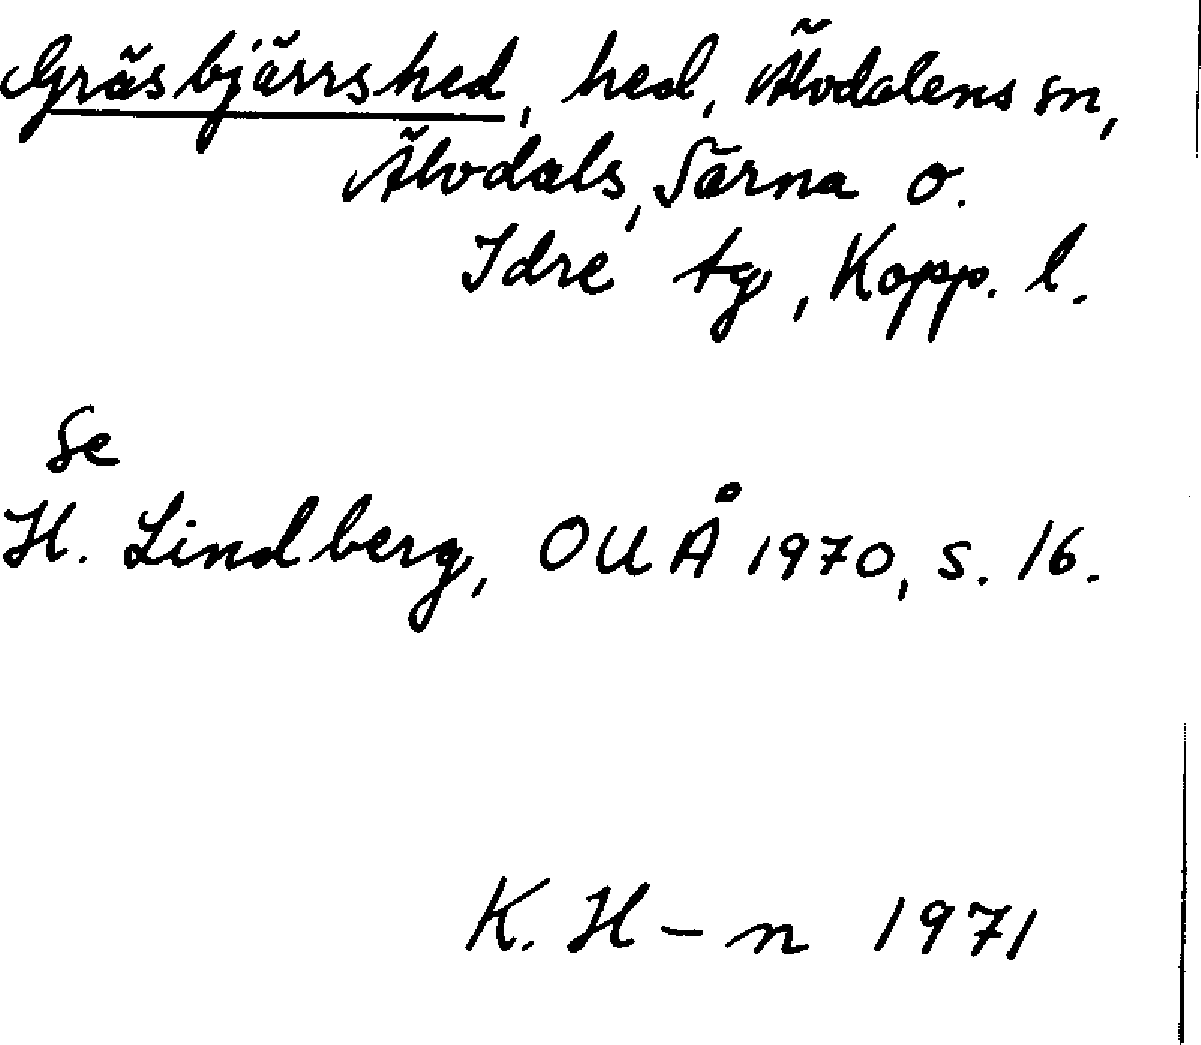 Gräsbjärrshed, hed, Älvdalens sn,
Älvdals, Särna o.
Idre tg, Kopp. l.
Se
H. Lindberg, OUÅ 1970, s. 16.
K. H-n 1971